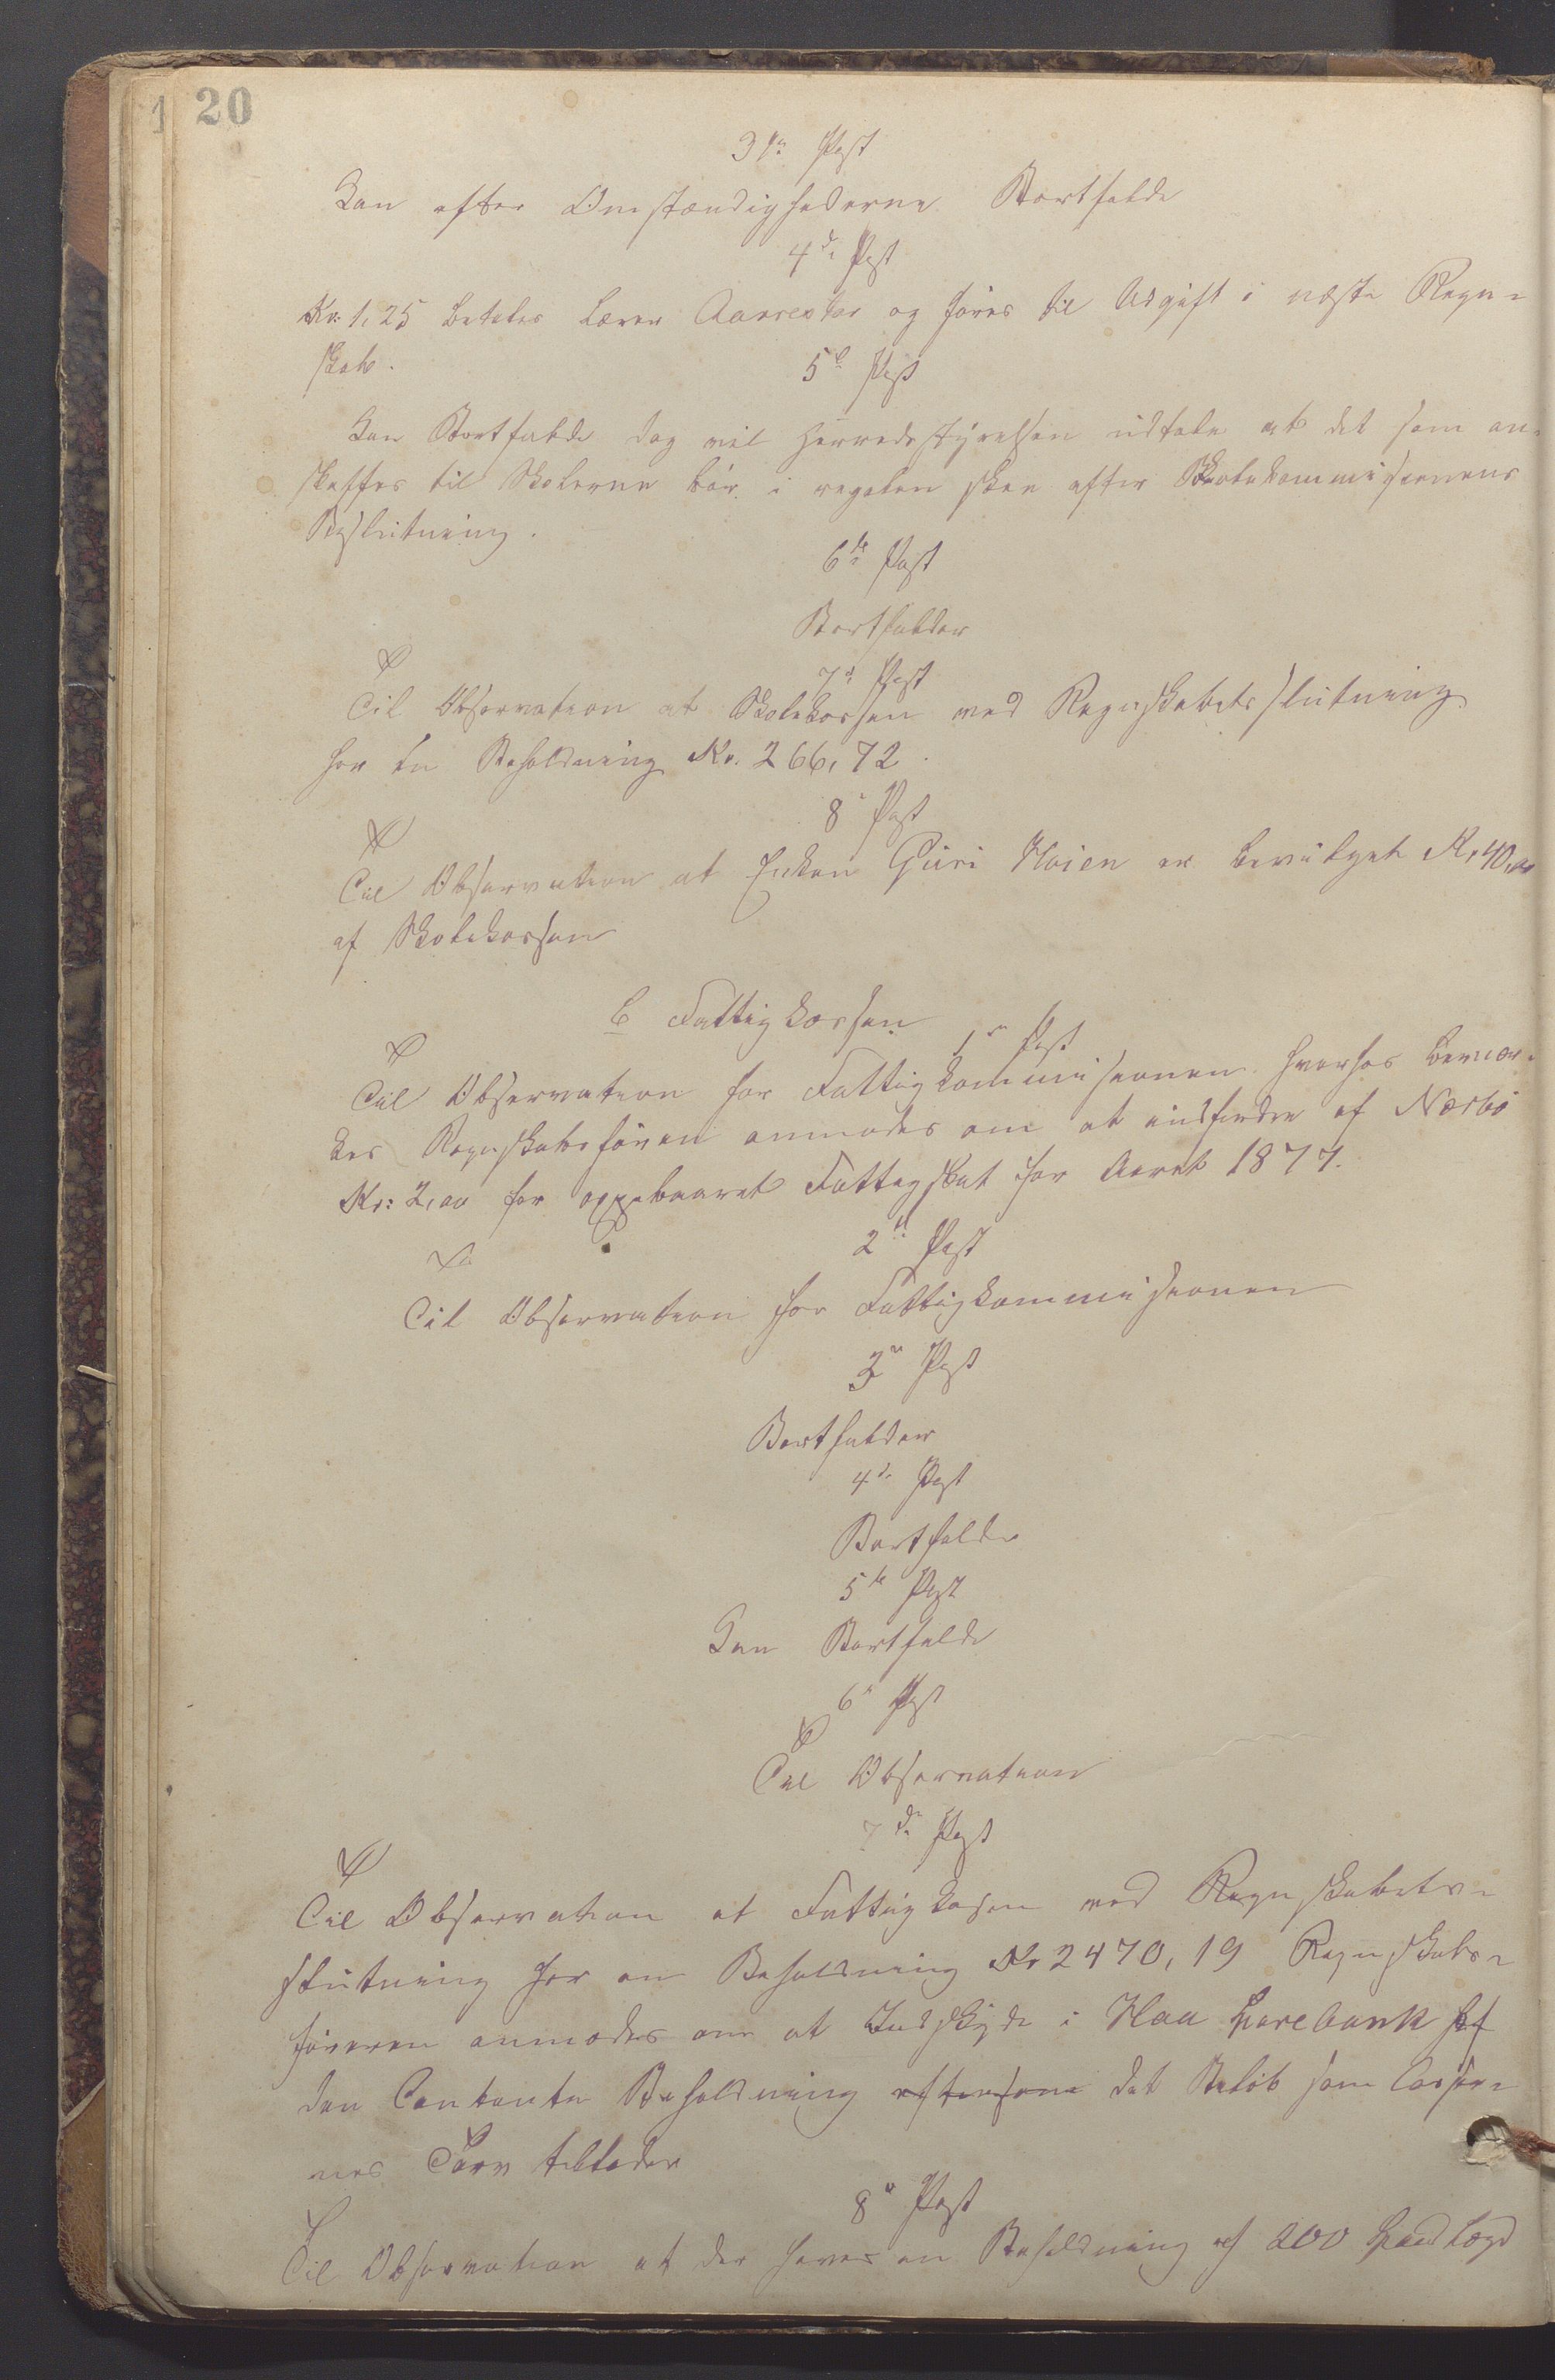 20
3die Post
Kan efter Omstændighederne Bortfalde
4de Post
Kr. 1,25 betales Lærer Aarrestad og føres til Udgift i næste Regn-
skab.
5te Post
Kan Bortfalde dog vil Herredsstyrelsen udtale at det som an-
skaffes til Skolerne bør i regelen skee efter Skolekommisionens
Beslutning.
6te Post
Bortfalder
7de Post
Til Observation at Skolekassen ved Regnskabets slutning
har en Beholdning Kr. 266,72.
8de Post
Til Observation at Enken Guri Høien er bevilget Kr 40,00
af Skolekassen
C Fattigkassen
1ste Post
Til Observation for Fattigkommisionen hvorhos bemær-
kes Regnskabsføreren anmodes om at indfordre af Nærbø
Kr: 2,00 for oppebaaret Fattigskat for Aaret 1877.
2den Post
Til Observation for Fattigkommisionen
3die Post
Bortfalder
4de Post
Bortfalder
5te Post
Kan Bortfalde
6te Post
Til Observation
7de Post
Til Observation at Fattigkasen ved Regnskabets-
slutning har en Beholdning Kr 2470,19 Regnskabs-
føreren anmodes om at Indskyde i Haa Sparebank af
den Contante Beholdning eftersom det Beløb som Casser-
nes Tarv tillader
8de Post
Til Observation at der haves en Beholdning af 200